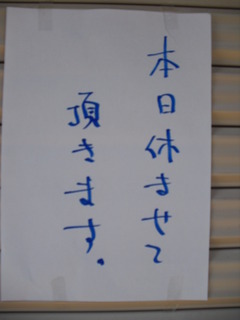 本日休ませて
頂きます.